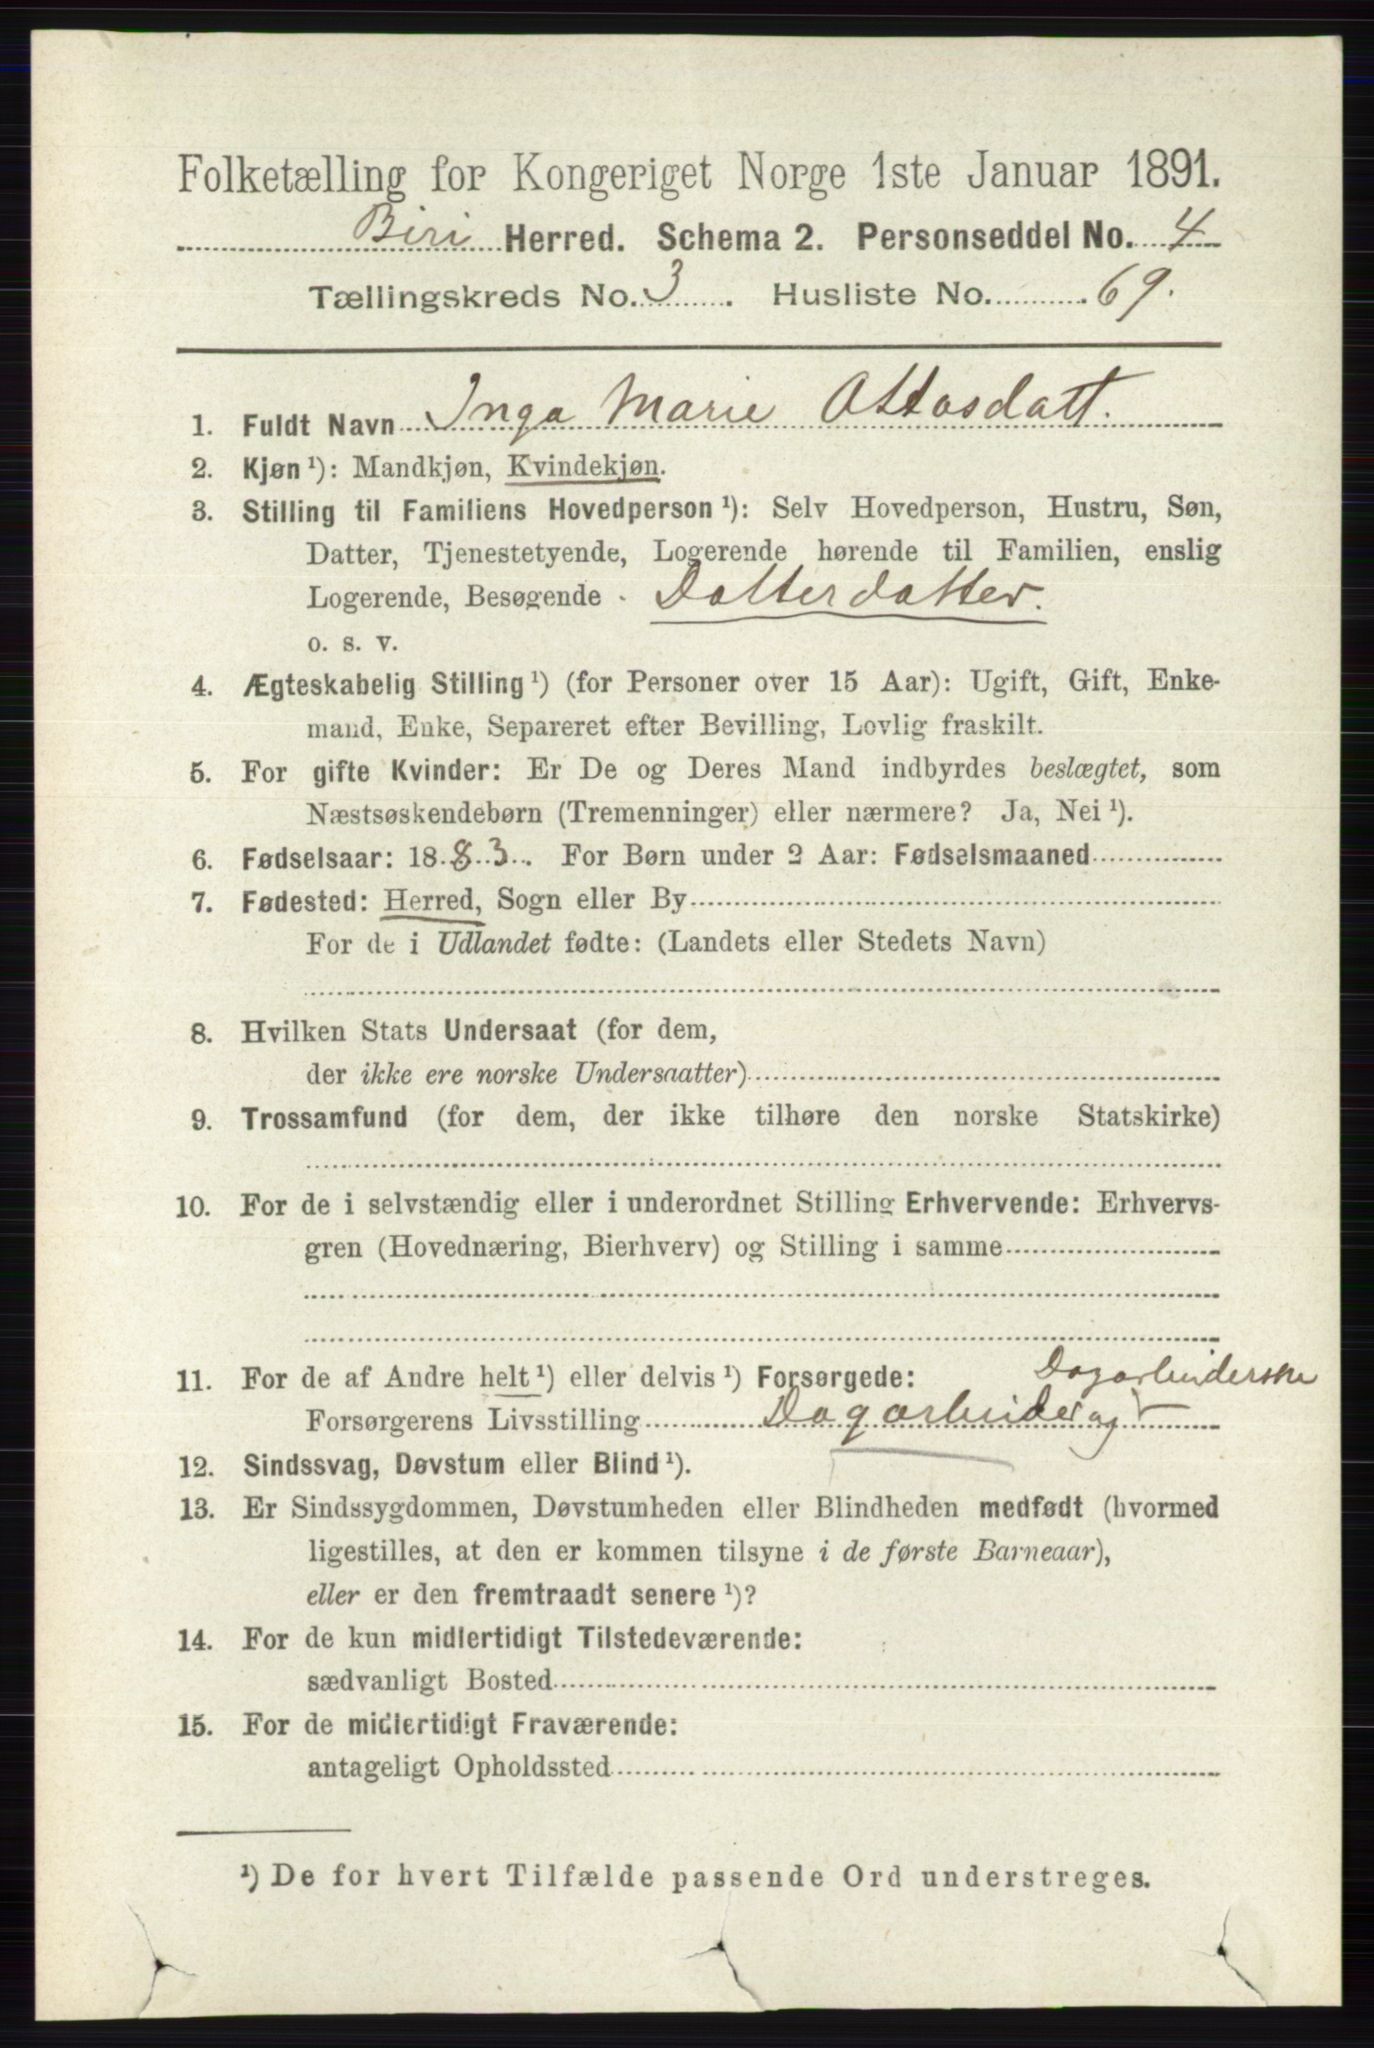 Folketælling for Kongeriget Norge 1ste Januar 1891.
Biri Herred. Schema 2. Personseddel No. 4
Tællingskreds No. 3. Husliste No. 69.
1. Fuldt Navn Inga Marie Ottosdatt.
2. Kjøn ¹): Mandkjøn, Kvindekjøn.
3. Stilling til Familiens Hovedperson ¹): Selv Hovedperson, Hustru, Søn,
Datter, Tjenestetyende, Logerende hørende til Familien, enslig
Logerende, Besøgende - Datterdatter.
o. s. v.
4. Ægteskabelig Stilling ¹) (for Personer over 15 Aar): Ugift, Gift, Enke-
mand, Enke, Separeret efter Bevilling, Lovlig fraskilt.
5. For gifte Kvinder: Er De og Deres Mand indbyrdes beslægtet, som
Næstsøskendebørn (Tremenninger) eller nærmere? Ja, Nei ¹).
6. Fødselsaar: 1883. For Børn under 2 Aar: Fødselsmaaned
7. Fødested: Herred, Sogn eller By
For de i Udlandet fødte: (Landets eller Stedets Navn)
8. Hvilken Stats Undersaat (for dem,
der ikke ere norske Undersaatter)
9. Trossamfund (for dem, der ikke tilhøre den norske Statskirke)
10. For de i selvstændig eller i underordnet Stilling Erhvervende: Erhvervs-
gren (Hovednæring, Bierhverv) og Stilling i samme
11. For de af Andre helt ¹) eller delvis ¹) Forsørgede: Dagarbeiderske
Forsørgerens Livsstilling Dagarbeider og
12. Sindssvag, Døvstum eller Blind ¹).
13. Er Sindssygdommen, Døvstumheden eller Blindheden medfødt (hvormed
ligestilles, at den er kommen tilsyne i de første Barneaar),
eller er den fremtraadt senere ¹)?
14. For de kun midlertidigt Tilstedeværende:
sædvanligt Bosted
15. For de midlertidigt Fraværende:
antageligt Opholdssted
¹) De for hvert Tilfælde passende Ord understreges.